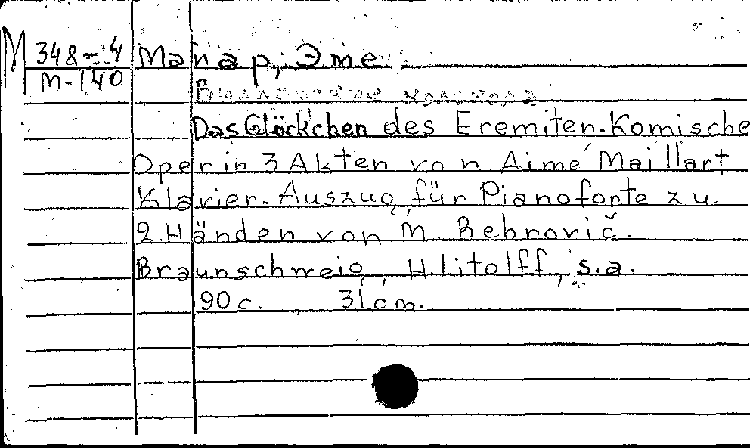 М 348-4 Маяр, Эме
М-140
Das Glöckchen des Eremiten. Komische
Oper in 3 Akten von Aimé Maillart
Klavier-Auszug für Pianoforte zu
2 Händen von M. Behrovič.
Braunschweig, H litolff, s.a.
90 c. 31 cm.